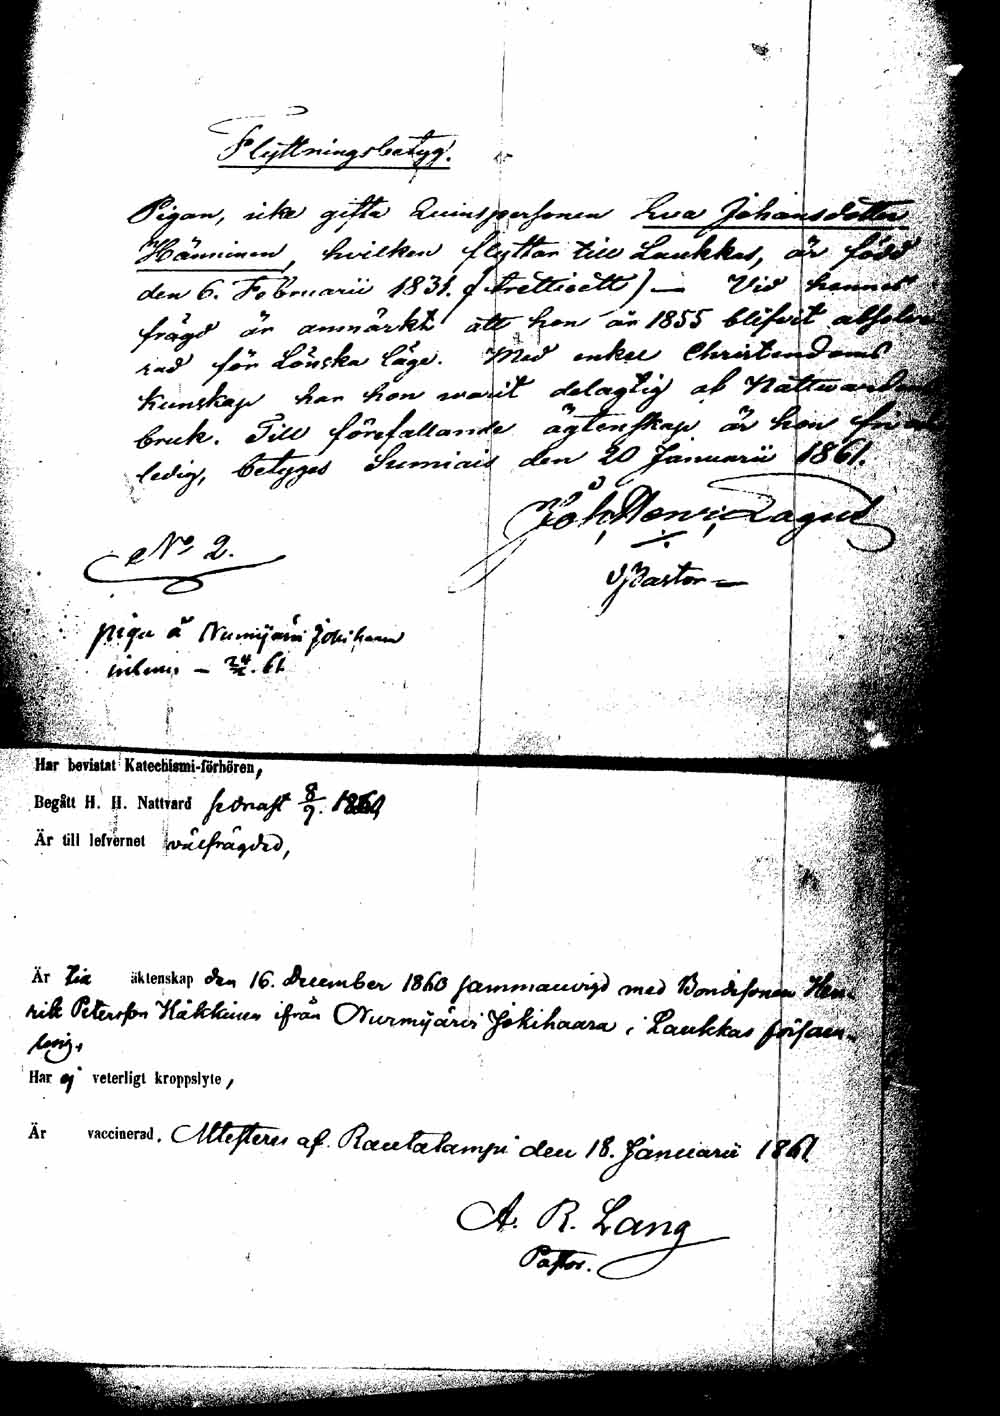 Flyttningsbetyg.
Pigan, icke gifta Quinspersonen Eva Johansdotter
Hänninen, hvilken flyttar till Laukkas, är född
den 6. Februarii 1831. (trettioett) — Vid hennes
frägd är anmärkt att hon år 1855 blifvit absolve
rad för Lönska läge. Med enkel Christendoms
kunskap har hon warit delagtig af Nattwardens
bruk. Till förefallande ägtenskap är hon fri och
ledig, betygas Sumiais den 20 Januarii 1861.
Joh. Henr. Lagus
Pastor
No 2.
piga å Nurmijärvi Jokihaara
61
Har bevistat Katechismi-förhören,
Begått H. H. Nattvard sednast 8/7. 1860,
Är till lefvernet välfrägdad,
Är till äktenskap den 16. December 1860 sammanvigd med Bondesonen Hen-
rik Petersson Häkkinen ifrån Nurmijärvi Jokihaara i Laukkas försam-
ling.
Har ej veterligt kroppslyte,
Är vaccinerad. Attesteras af Rautalampi den 18. Januarii 1861
A. R. Lang
Pastor.